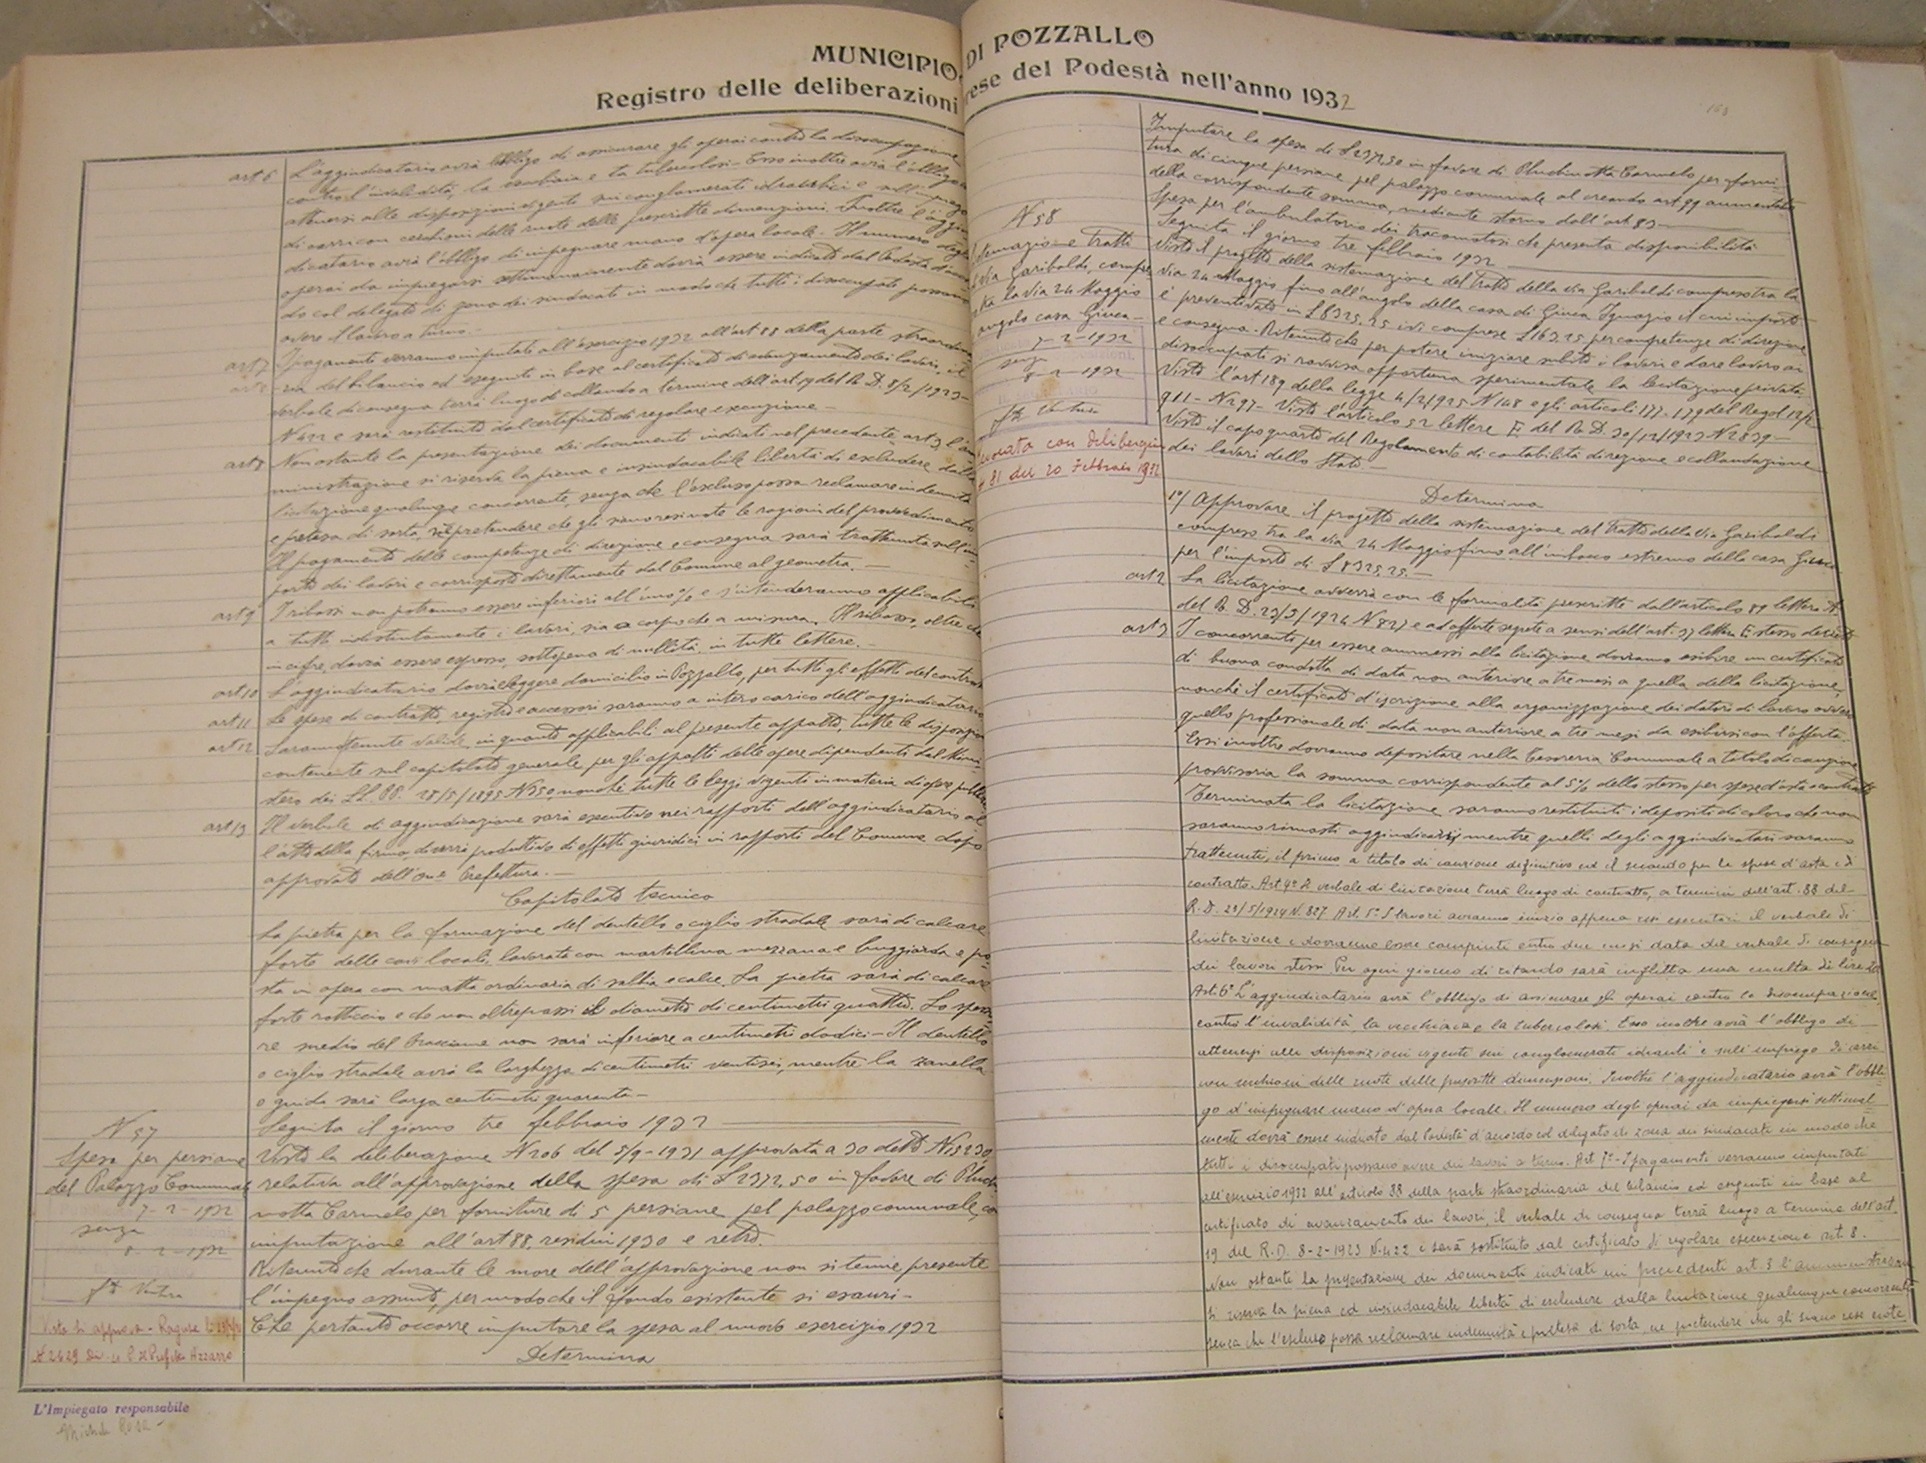 MUNICIPIO DI POZZALLO
Registro delle deliberazioni rese del Podestà nell'anno 1932
art 6 L'aggiudicatario avrà l'obbligo di assicurare gli operai contro la disoccupazione
contro l'invalidità, la vecchiaia e la tubercolosi - Esso inoltre avrà l'obbligo
attenersi alle disposizioni vigenti sui conglomerati idraulici e sull'impiego
di carri con cerchioni delle ruote delle prescritte dimensioni. Inoltre l'aggiu
dicatario avrà l'obbligo di impegnare mano d'opera locale. Il numero degli
operai da impiegarsi settimanalmente dovrà essere indicato dal Podestà d'accor
do col delegato di zona dei sindacati in modo che tutti i disoccupati possano
avere il lavoro a turno -
art 7 I pagamenti verranno imputati all'esercizio 1932 all'art 88 della parte straordina
ria del bilancio ed eseguiti in base al certificato di avanzamento dei lavori, il
verbale di consegna terrà luogo di collaudo a termine dell'art 19 del R. D. 8/2/1923 -
N 422 e sarà restituito dal certificato di regolare esecuzione -
art 8 Non ostante la presentazione dei documenti indicati nel precedente art 3 l'am
ministrazione si riserva la piena e insindacabile libertà di escludere dalla
licitazione qualunque concorrente, senza che l'escluso possa reclamare indennità
e pretesa di sorta, nè pretendere che gli siano rese note le ragioni del provvedimento
Il pagamento delle competenze di direzione e consegna sarà trattenuto sull'im-
porto dei lavori e corrisposto direttamente dal Comune al geometra. -
art 9 I ribassi non potranno essere inferiori all'uno % e s'intenderanno applicabili
a tutti indistintamente i lavori, sia a corpo che a misura. Il ribasso, oltre che
in cifre, dovrà essere espresso, sotto pena di nullità, in tutte lettere. -
art 10 L'aggiudicatario dovrà eleggere domicilio in Pozzallo, per tutti gli effetti del contratto
art 11 Le spese di contratto, registro e accessori saranno a intero carico dell'aggiudicatario
art 12 Saranno tenute valide, in quanto applicabili al presente appalto, tutte le disposizioni
contenute nel capitolato generale per gli appalti delle opere dipendenti dal Mini
stero dei LL. PP. 28/5/1895 N 350, nonchè tutte le leggi vigenti in materia di opere pubbliche
art 13 Il verbale di aggiudicazione sarà esecutivo nei rapporti dell'aggiudicatario al
l'atto della firma, diverrà produttivo di effetti giuridici in rapporti del Comune dopo
approvato dell'On.e Prefettura. -
Capitolato tecnico
La pietra per la formazione del dentello o ciglio stradale sarà di calcare
forte delle cave locali, lavorata con martellina mezzana e bugiarda e po
sta in opera con malta ordinaria di sabbia e calce. La pietra sarà di calcare
forte rotticcio e che non oltrepassi il diametro di centimetri quattro. Lo spesso
re medio del braccione non sarà inferiore a centimetri dodici - Il dentello
o ciglio stradale avrà la larghezza di centimetri ventisei, mentre la zanella
o guida sarà larga centimetri quaranta -
Seguita il giorno tre febbraio 1932
N 57
Spesa per persiane
del Palazzo Comunale
7-2-1932
senza
8-2-1932
Visto si approva - Ragusa li
N 2629 Div. Il Prefetto Azzarro
Vista la deliberazione N 206 del 5/9-1931 approvata a 30 detto N 15230
relativa all'approvazione della spesa di L 2372,50 in favore di Pluchi
notta Carmelo per forniture di 5 persiane pel palazzo comunale, con
imputazione all'art 88, residui 1930 e retro.
Ritenuto che durante le more dell'approvazione non si tenne presente
l'impegno assunto, per modo che il fondo esistente si esaurì -
Che pertanto occorre imputare la spesa al nuovo esercizio 1932
Determina
L'Impiegato responsabile
Imputare la spesa di L 2372,50 in favore di Pluchinotta Carmelo per forni-
tura di cinque persiane pel palazzo comunale al creando art 99 aumentato
della corrispondente somma, mediante storno dall'art 83
Spesa per l'ambulatorio dei tracomatosi che presenta disponibilità
Seguita il giorno tre febbraio 1932
N 58
Sistemazione tratto
via Garibaldi, compre
tra la via 24 Maggio
angolo casa Giunca -
7-2-1932
senza
8-2-1932
Revocata con deliberazione
N 81 del 20 Febbraio 1932
Visto il progetto della sistemazione del tratto della via Garibaldi compreso tra la
via 24 Maggio fino all'angolo della casa di Giunca Ignazio il cui importo
è preventivato in L 8325,25 ivi comprese L 163,25 per competenze di direzione
e consegna. Ritenuto che per potere iniziare subito i lavori e dare lavoro ai
disoccupati si ravvisa opportuna sperimentale la licitazione privata
Visto l'art 189 della legge 4/2/1915 N 148 e gli articoli 177-179 del Reg.to 12/2
911 - N 297 - Visto l'articolo 52 lettera E del R. D. 30/12/1923 N 2839 -
Visto il capo quarto del Regolamento di contabilità direzione e collaudazione
dei lavori dello Stato. -
Determina
1°/ Approvare il progetto della sistemazione del tratto della via Garibaldi
compreso tra la via 24 Maggio fino all'imbocco estremo della casa Giunca
per l'importo di L 8325,25. -
art 2 La licitazione avverrà con le formalità prescritte dall'articolo 89 lettera A.
del R. D. 23/5/1924 N 827 e ad offerte segrete a sensi dell'art. 37 lettera E stesso decreto
art 3 I concorrenti per essere ammessi alla licitazione dovranno esibire un certificato
di buona condotta di data non anteriore a tre mesi a quella della licitazione,
nonchè il certificato d'iscrizione alla organizzazione dei datori di lavoro ovvero
quello professionale di data non anteriore a tre mesi da esibirsi con l'offerta.
Essi inoltre dovranno depositare nella Tesoreria Comunale a titolo di cauzione
provvisoria la somma corrispondente al 5% dello stesso per spese d'asta e contratto
Terminata la licitazione saranno restituiti i depositi di coloro che non
saranno rimasti aggiudicatari mentre quelli degli aggiudicatari saranno
trattenuti, il primo a titolo di cauzione definitiva ed il secondo per le spese d'asta e di
contratto. Art 4° Il verbale di licitazione terrà luogo di contratto, a termini dell'art. 88 del
R. D. 23/5/1924 N. 827. Art. 5° I lavori avranno inizio appena reso esecutorio il verbale di
licitazione e dovranno essere compiuti entro due mesi dalla data del verbale di consegna
dei lavori stessi. Per ogni giorno di ritardo sarà inflitta una multa di lire
Art. 6° L'aggiudicatario avrà l'obbligo di assicurare gli operai contro la disoccupazione
contro l'invalidità la vecchiaia e la tubercolosi. Esso inoltre avrà l'obbligo di
attenersi alle disposizioni vigenti sui conglomerati idraulici e sull'impiego di carri
con cerchioni delle ruote delle prescritte dimensioni. Inoltre l'aggiudicatario avrà l'obbli-
go d'impegnare mano d'opera locale. Il numero degli operai da impiegarsi settimanal-
mente dovrà essere indicato dal Podestà d'accordo col delegato di zona dei sindacati in modo che
tutti i disoccupati possano avere dei lavori a turno. Art 7° - I pagamenti verranno imputati
all'esercizio 1932 all'articolo 88 della parte straordinaria del bilancio ed eseguiti in base al
certificato di avanzamento dei lavori, il verbale di consegna terrà luogo a termine dell'art.
19 del R. D. 8-2-1923 N. 422 e sarà sostituito dal certificato di regolare esecuzione art 8.
Non ostante la presentazione dei documenti indicati nei precedenti art 3 l'amministrazione
si riserva la piena ed insindacabile libertà di escludere dalla licitazione qualunque concorrente
senza che l'escluso possa reclamare indennità e pretesa di sorta, ne pretendere che gli siano rese note